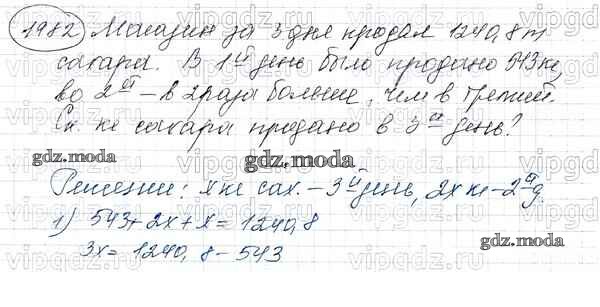 1982 Магазин за 3 дня продал 1240,8 т
сахара. В 1ый день было продано 543 кг,
во 2ой – в 2 раза больше, чем в третий.
Ск. кг сахара продано в 3ий день?
gdz.moda
gdz.moda
Решение: x кг сах. – 3ий день, 2x кг – 2ой д.
1) 543 + 2x + x = 1240,8
3x = 1240,8 – 543
gdz.moda